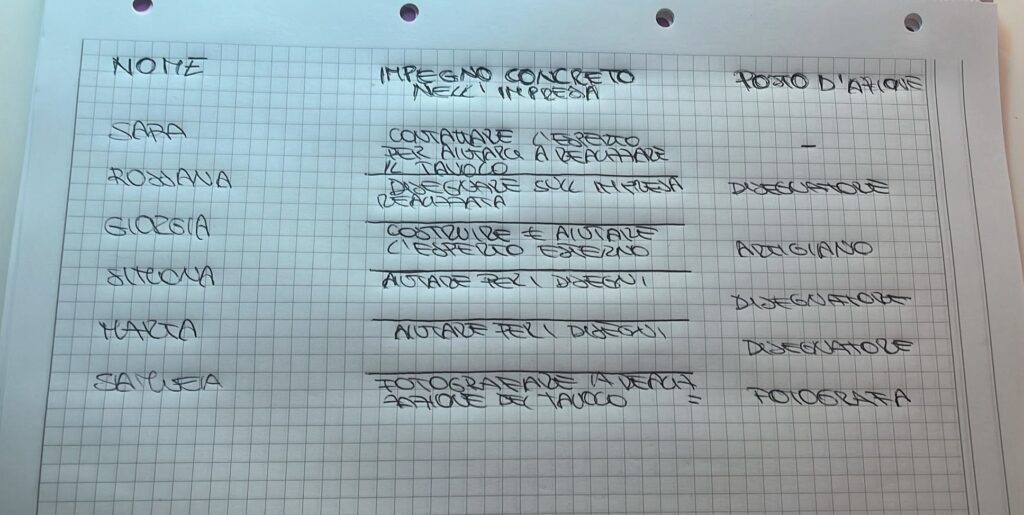 NOME IMPEGNO CONCRETO POSTO D'AZIONE
NELL'IMPRESA
SARA CONTATTARE L'ESPERTO -
PER AIUTARCI A REALIZZARE
IL TAVOLO
ROSSANA DISEGNARE SULL IMPRESA DISEGNATORE
REALIZZATA
GIORGIA COSTRUIRE E AIUTARE
L'ESPERTO ESTERNO ARTIGIANO
SIMONA AIUTARE PER I DISEGNI
DISEGNATORE
MARTA AIUTARE PER I DISEGNI
DISEGNATORE
FOTOGRAFARE LA REALIZ
ZAZIONE DEL TAVOLO = FOTOGRAFA